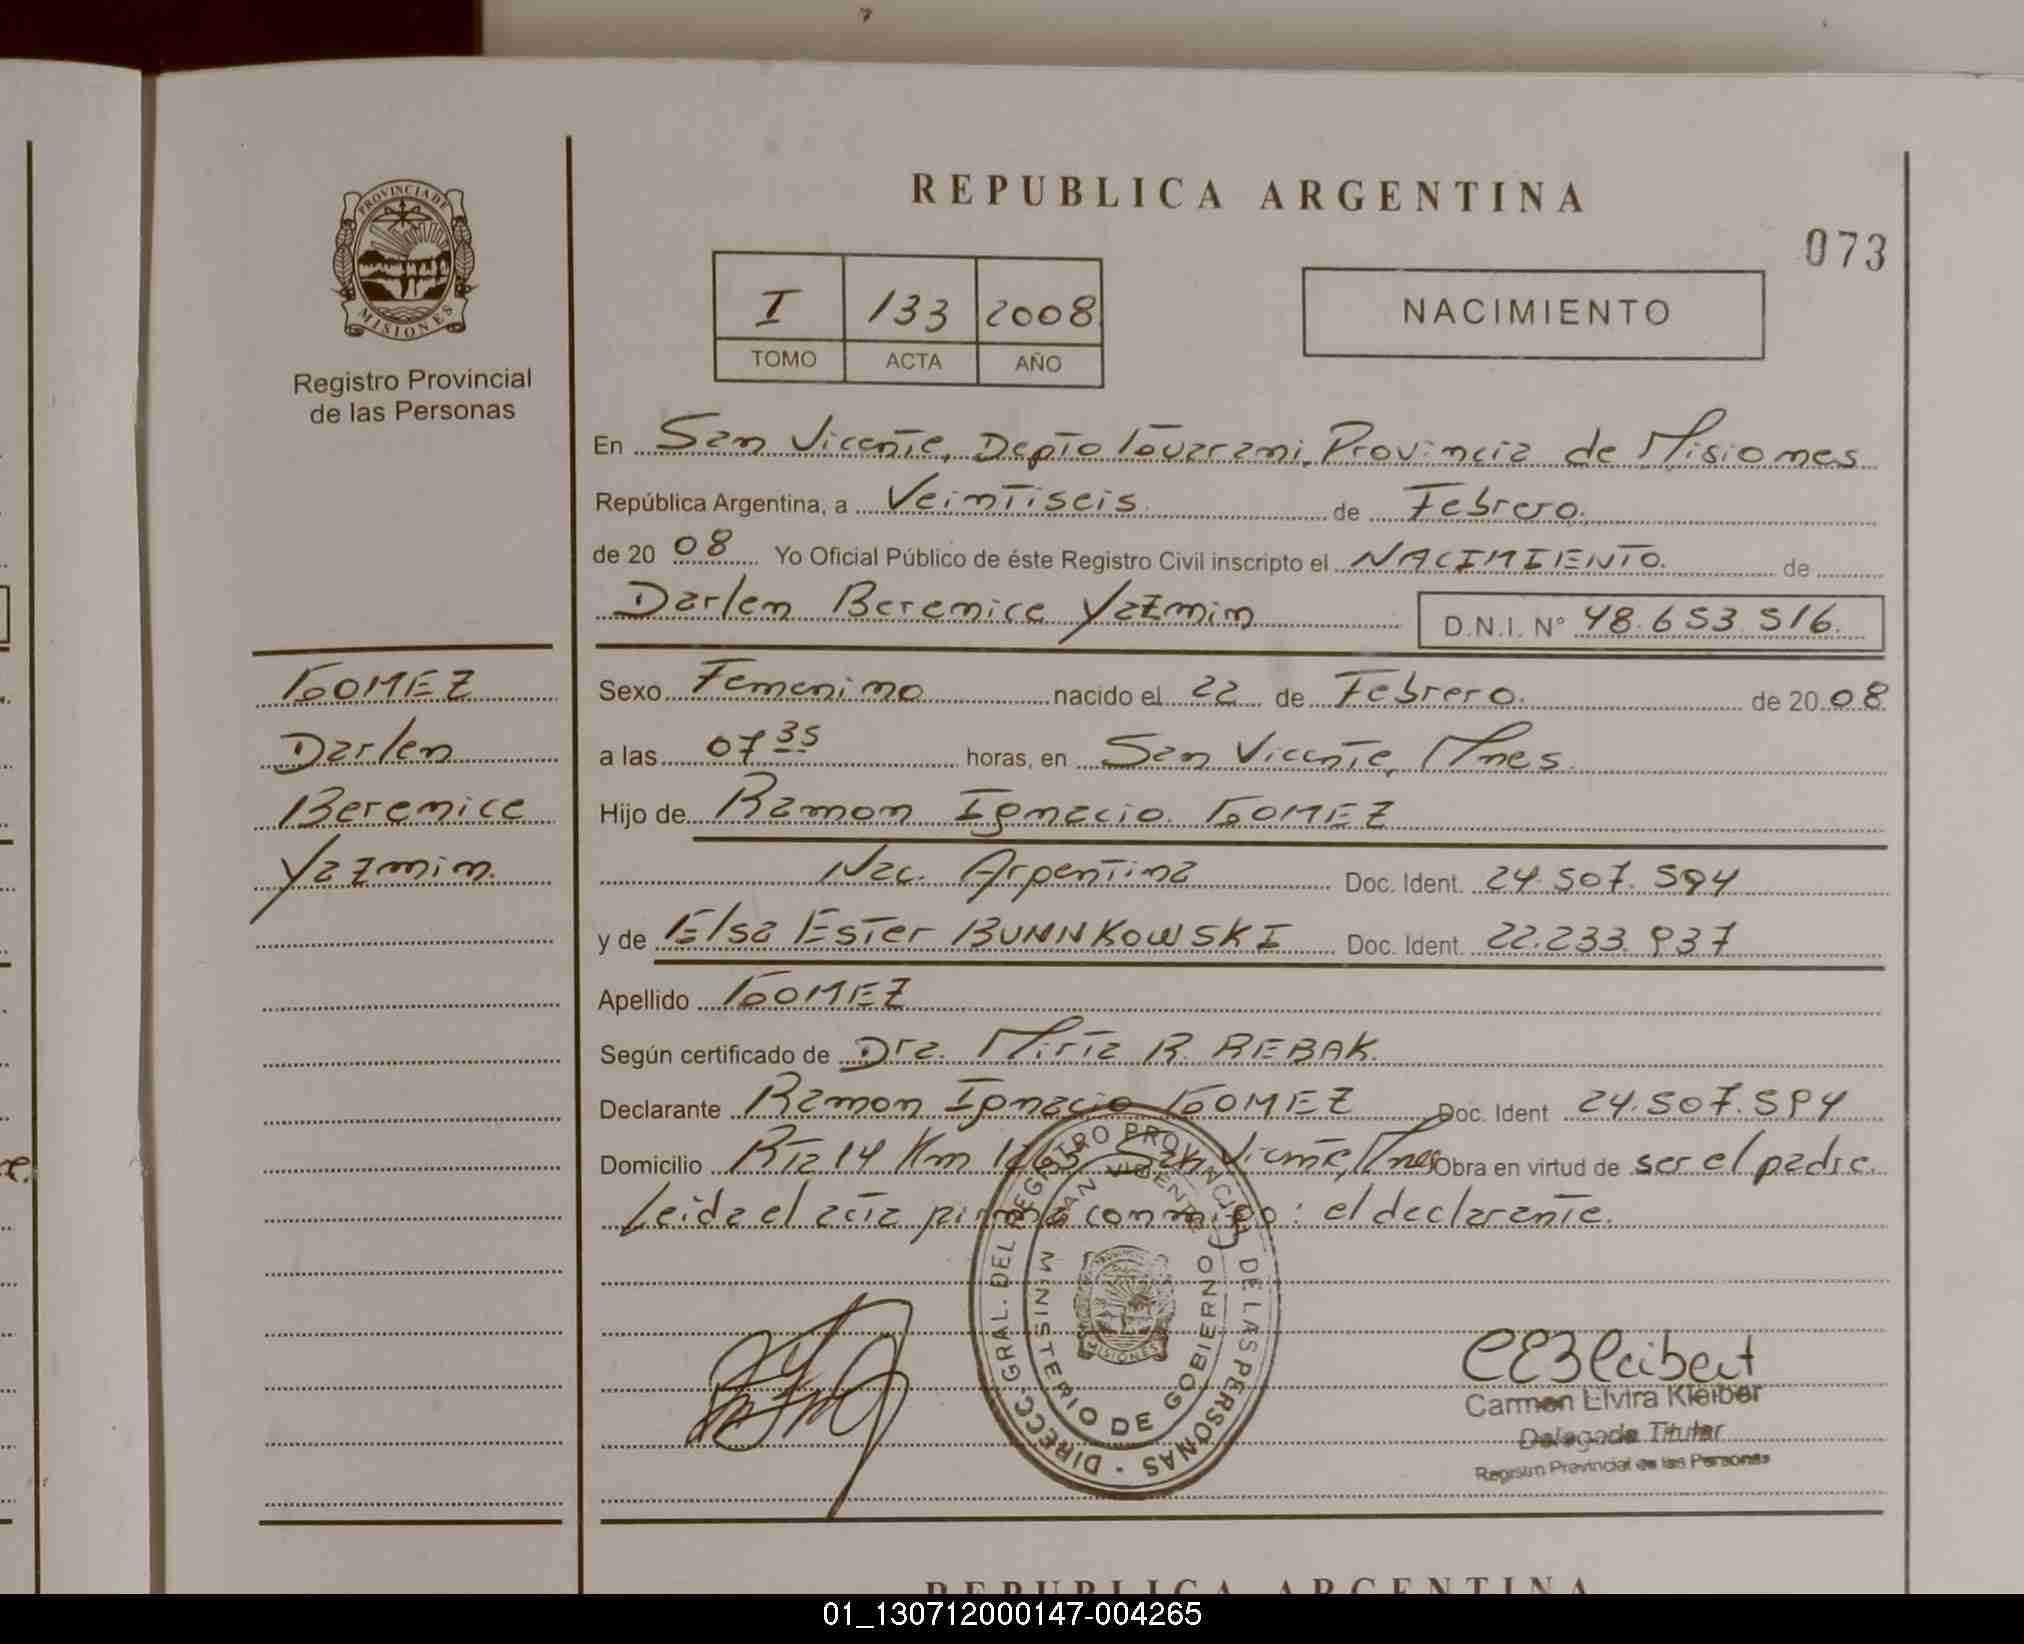 REPUBLICA ARGENTINA
073
PROVINCIA DE
MISIONES
Registro Provincial
de las Personas
I 133 2008
TOMO ACTA AÑO
NACIMIENTO
En San Vicente, Depto Guarani, Provincia de Misiones
República Argentina, a Veintiseis de Febrero.
de 20 08 Yo Oficial Público de éste Registro Civil inscripto el NACIMIENTO. de
Darlen Berenice Yazmin D.N.I. N° 48.653.516.
GOMEZ
Darlen
Berenice
Yazmin.
Sexo Femenino nacido el 22 de Febrero. de 20 08
a las 07 35 horas, en San Vicente, Mnes.
Hijo de Ramon Ignacio GOMEZ
Nac. Argentina Doc. Ident. 24.507.594
y de Elsa Ester BUNNKOWSKI Doc. Ident. 22.233.937
Apellido GOMEZ
Según certificado de Dra. Mirta R. REBAK.
Declarante Ramon Ignacio GOMEZ Doc. Ident 24.507.594
Domicilio Rta 14 Km San Vicente, Mnes Obra en virtud de ser el padre.
Leida el acta firma conmigo: el declarante.
DIRECC. GRAL. DEL REGISTRO PROVINCIAL DE LAS PERSONAS -
SAN VICENTE
MINISTERIO DE GOBIERNO
MISIONES
Carmen Elvira Kleiber
Delegada Titular
Registro Provincial de las Personas
REPUBLICA ARGENTINA
01_130712000147-004265